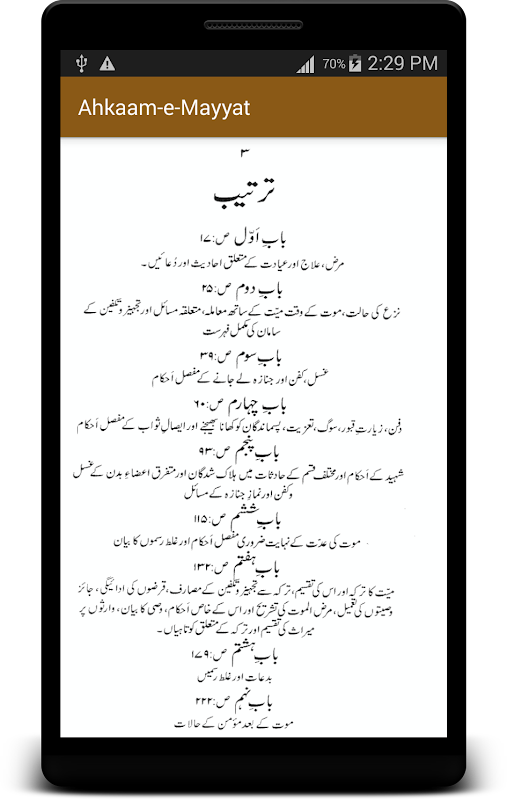 70% 2:29 PM
Ahkaam-e-Mayyat
۳
ترتیب
بابِ اوّل ص:۱۷
مرض، علاج اور عیادت کے متعلق احادیث اور دُعائیں۔
بابِ دوم ص:۲۵
نزع کی حالت، موت کے وقت میّت کے ساتھ معاملہ، متعلقہ مسائل اور تجہیز و تکفین کے
سامان کی مکمل فہرست
بابِ سوم ص:۳۹
غسل، کفن اور جنازہ لے جانے کے مفصل اَحکام
بابِ چہارم ص:۶۰
دفن، زیارتِ قبور، سوگ، تعزیت، پسماندگان کو کھانا بھیجنے اور ایصالِ ثواب کے مفصل اَحکام
بابِ پنجم ص:۹۳
شہید کے اَحکام اور مختلف قسم کے حادثات میں ہلاک شدگان اور متفرق اعضاءِ بدن کے غسل
و کفن اور نمازِ جنازہ کے مسائل
بابِ ششم ص:۱۱۵
موت کی عدّت کے نہایت ضروری مفصل اَحکام اور غلط رسموں کا بیان
بابِ ہفتم ص:۱۳۲
میّت کا ترکہ اور اس کی تقسیم، ترکہ سے تجہیز و تکفین کے مصارف، قرضوں کی ادائیگی، جائز
وصیتوں کی تعمیل، مرض الموت کی تشریح اور اس کے خاص اَحکام، وصی کا بیان، وارثوں پر
میراث کی تقسیم اور ترکہ کے متعلق کوتاہیاں۔
بابِ ہشتم ص:۱۷۹
بدعات اور غلط رسمیں
بابِ نہم ص:۲۲۲
موت کے بعد مؤمن کے حالات